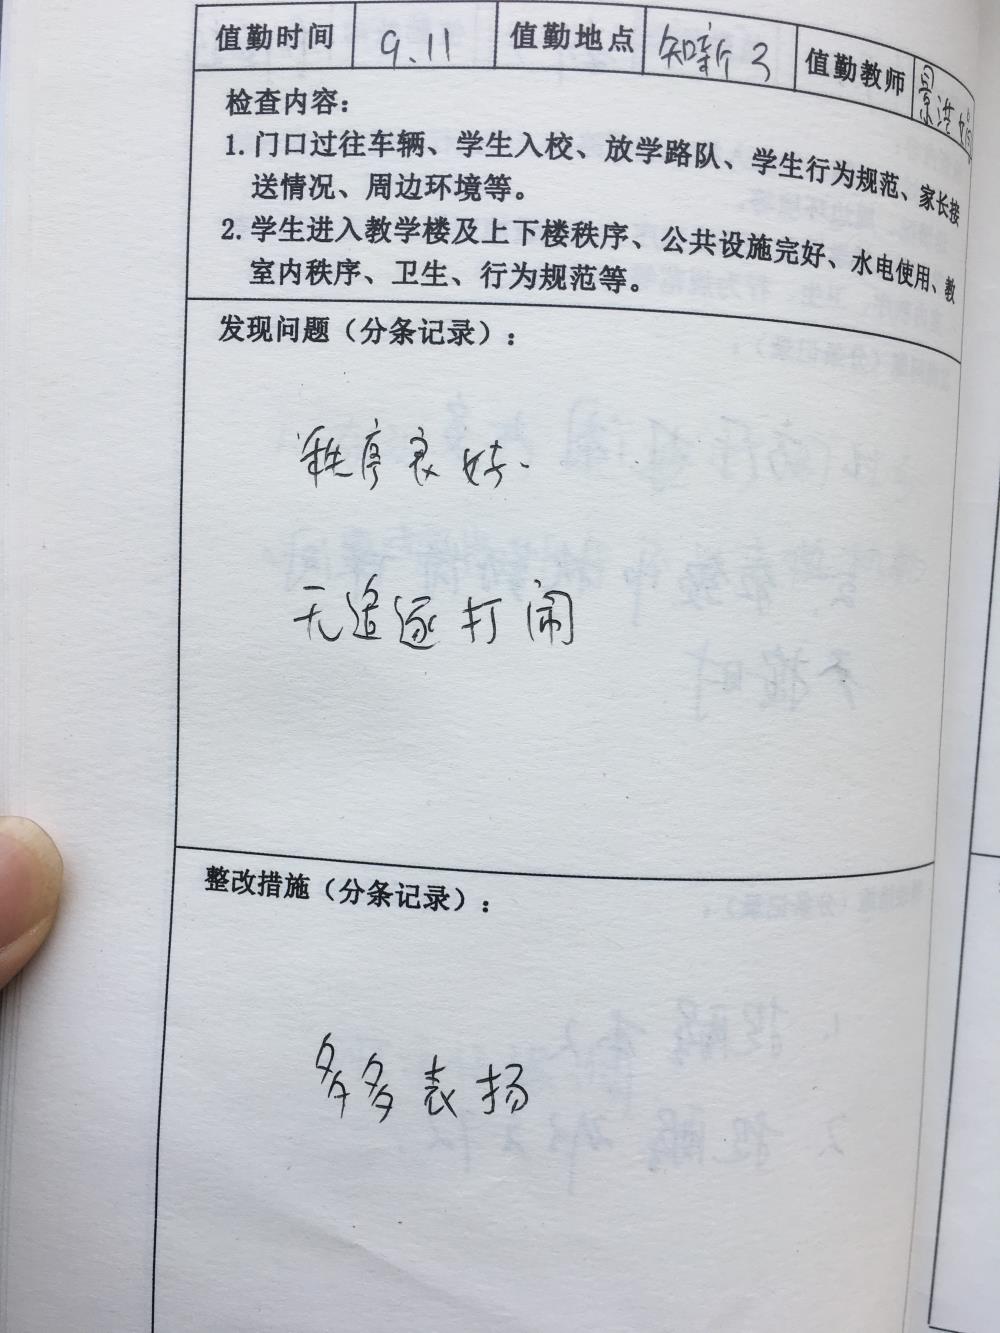 值勤时间 9.11 值勤地点 知新3 值勤教师
检查内容：
1.门口过往车辆、学生入校、放学路队、学生行为规范、家长接
送情况、周边环境等。
2.学生进入教学楼及上下楼秩序、公共设施完好、水电使用、教
室内秩序、卫生、行为规范等。
发现问题（分条记录）：
秩序良好.
无追逐打闹
整改措施（分条记录）：
多多表扬